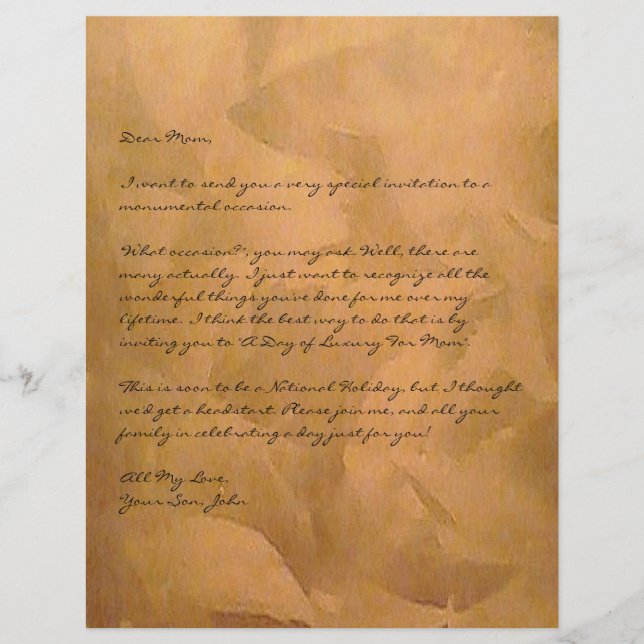 Dear Mom,
I want to send you a very special invitation to a
monumental occasion.
"What occasion?", you may ask. Well, there are
many actually. I just want to recognize all the
wonderful things you've done for me over my
lifetime. I think the best way to do that is by
inviting you to "A Day of Luxury For Mom".
This is soon to be a National Holiday, but, I thought
we'd get a headstart. Please join me, and all your
family in celebrating a day just for you!
All My Love,
Your Son, John